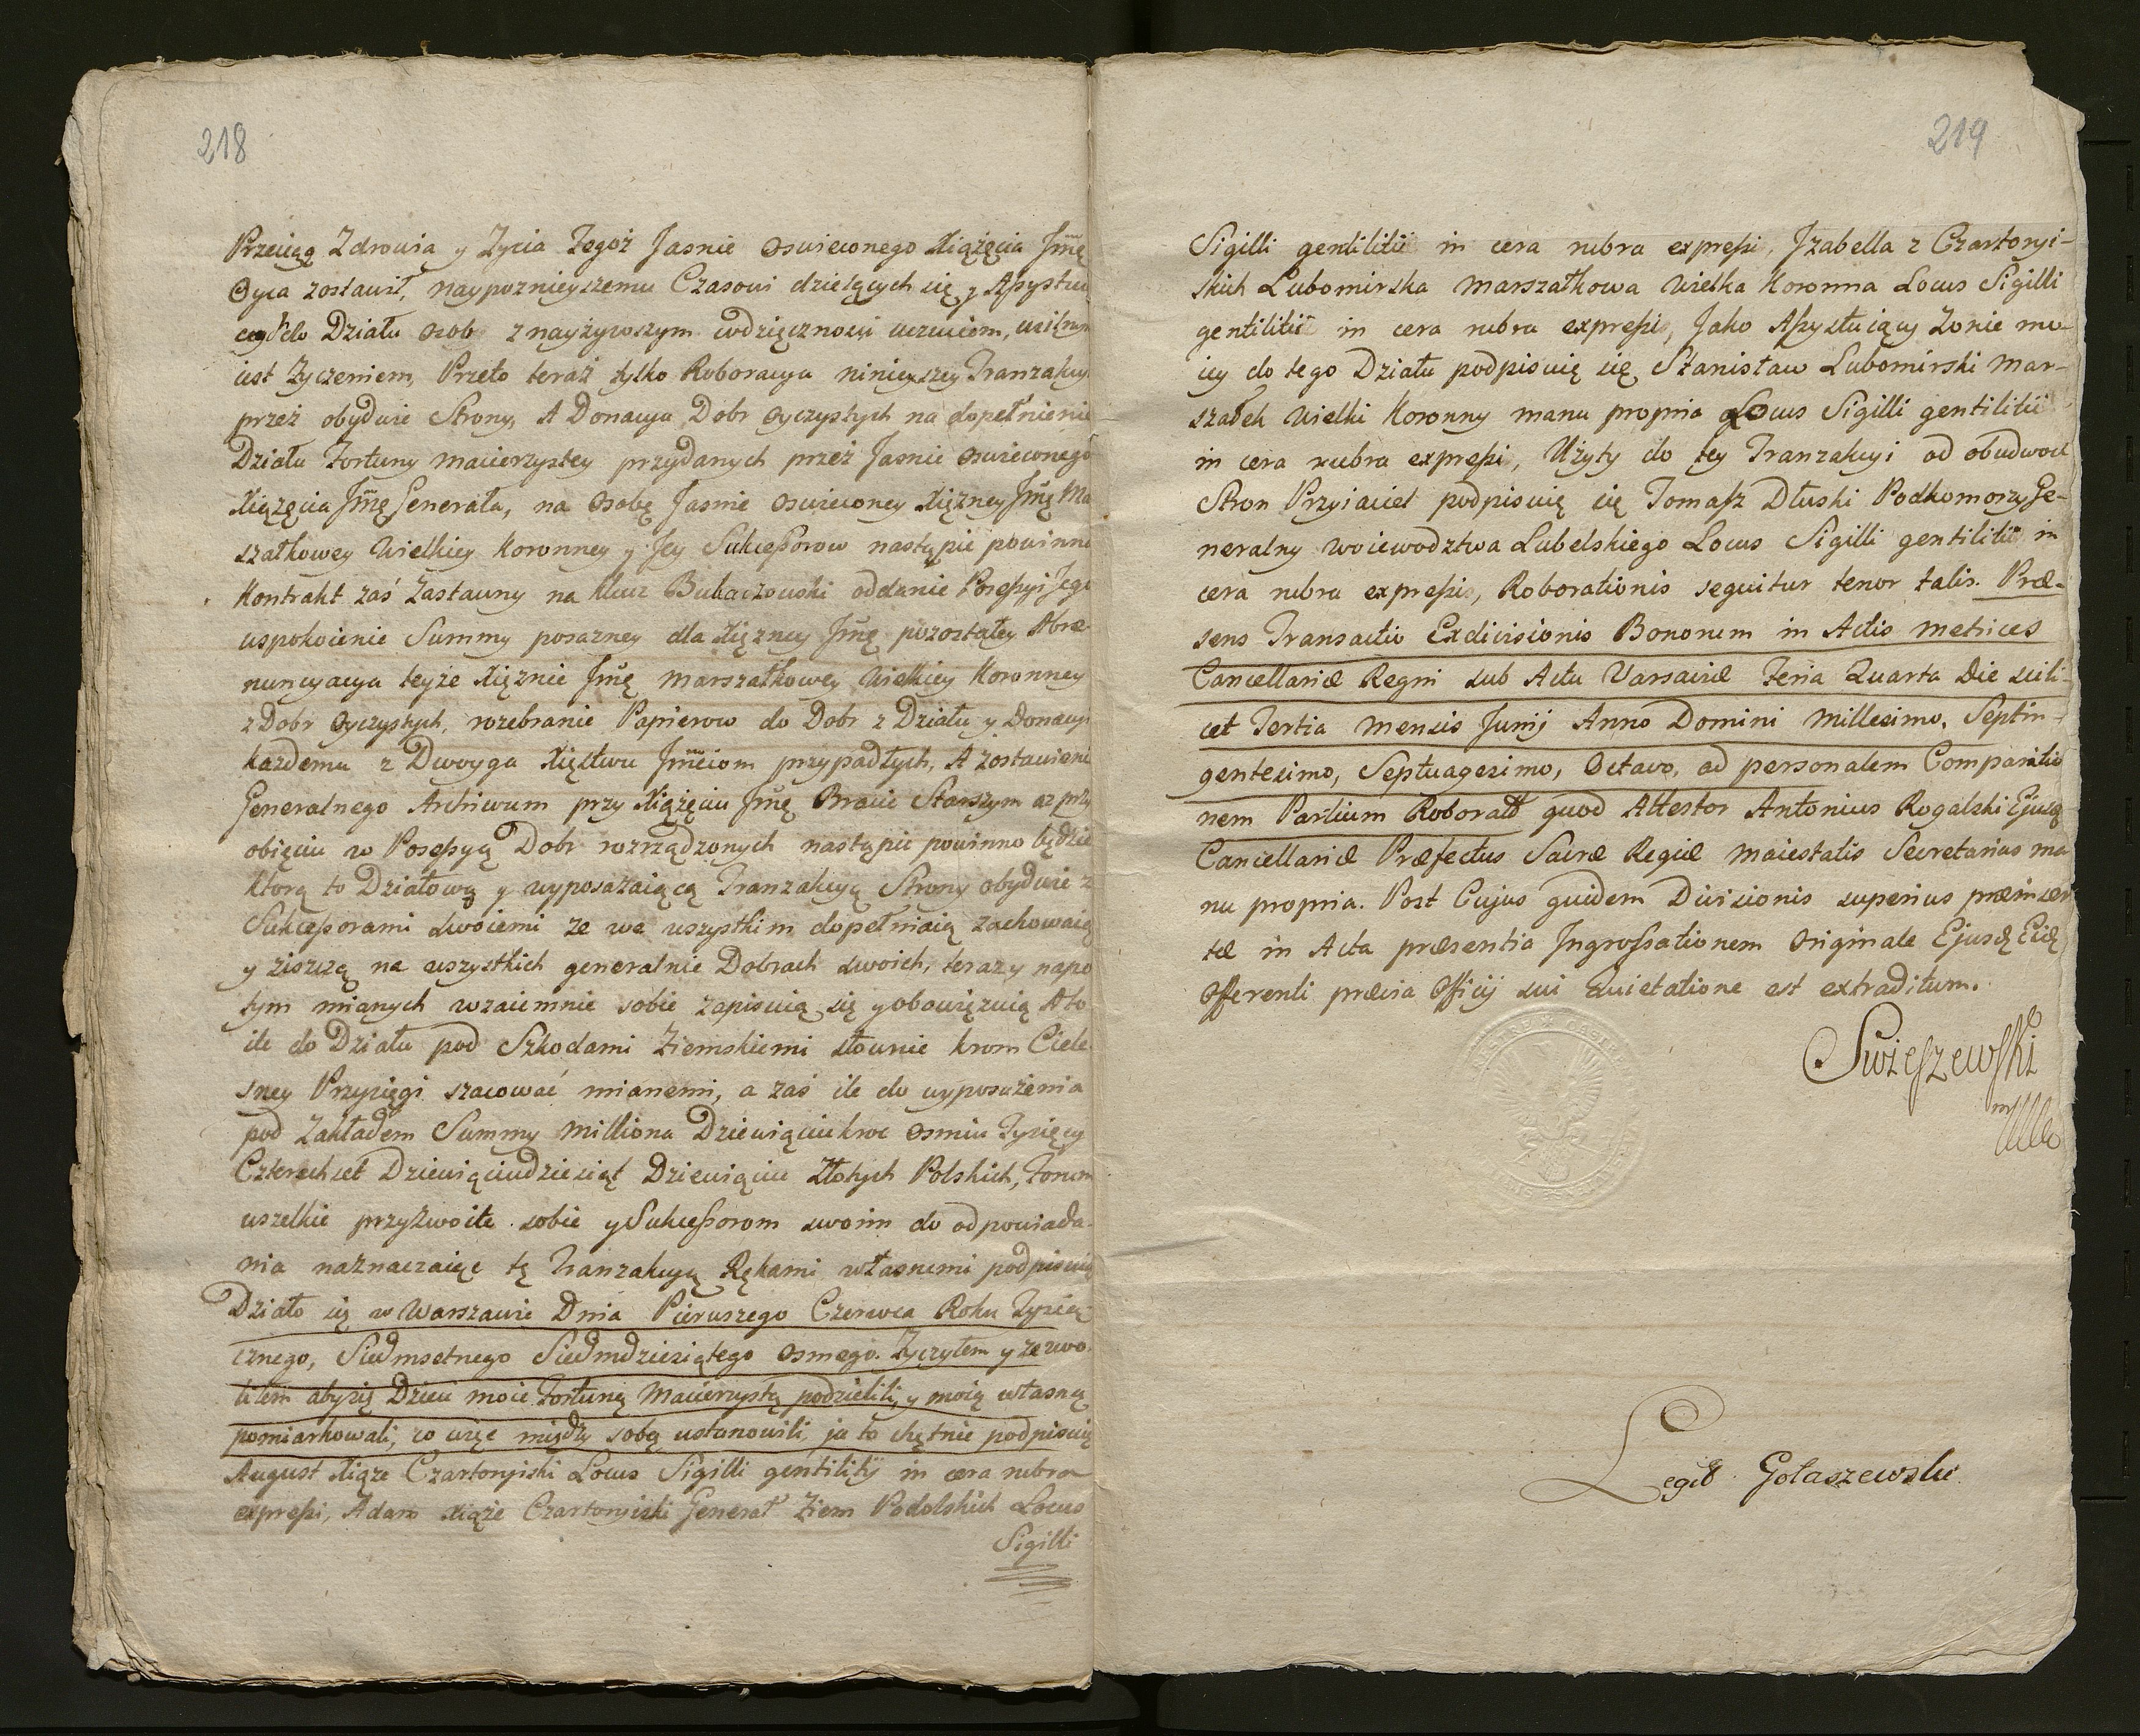 218
Przeciąg Zdrowia y Zycia Tegoż Jasnie Oswieconego Xiążęcia Jmę
Oyca zostawił, naypoznieyszemu Czasowi dzielących się y Assystu
cych do Działu Osob z nayżywszym wdzięcznosci uczuciom, usilnym
iest Zyczeniem, Przeto teraż tylko Roboracya ninieyszey Tranzakcyi
przeż obydwie Strony, A Donacya Dobr Oyczystych na dopełnienie
Działu Fortuny Macierzystey przydanych przeż Jasnie Oswieconego
Xiążęcia Jmę Generała, na Osobę Jasnie Oswieconey Xiężney Jmę Ma
szałkowey Wielkiey Koronney y Jey Sukcessorow nastąpic powinna
Kontrakt zaś Zastawny na Klucz Bukaczowski oddanie Possessyi Jego
uspokoienie Summy posazney dla Xiężney Jmę pozostałey Abre
nuncyacya teyże Xiężnie Jmę Marszałkowey Wielkiey Koronney
z Dobr Oyczystych, rozebranie Papierow do Dobr z Działu y Donacyi
każdemu z Dwoyga Xięstwu Jmciom przypadłych, A zostawienie
Generalnego Archiwum przy Xiążęciu Jmę Bracie Starszym aż przy
obięciu w Possessyą Dobr rozrządzonych nastąpic powinno będzie
ktorą to Działową y wyposażaiącą Tranzakcyą Strony obydwie z
Sukcessorami swoiemi że we wszystkim dopełniaią zachowaią
y ziszczą na wszystkich generalnie Dobrach swoich, teraz y napo
tym mianych wzaiemnie sobie zapisuią się y obowięzuią A to
ile do Działu pod Szkodami Ziemskiemi słownie krom Ciele
sney Przysięgi szacować mianemi, a zaś ile do wyposażenia
pod Zakładem Summy Milliona Dziewiąciukroc Osmiu Tysięcy
Czterechset Dziewiąciudziesiąt Dziewiąciu Złotych Polskich, Forum
wszelkie przyzwoite sobie y Sukcessorom swoim do odpowiada-
nia naznaczaiąc tę Tranzakcyą Rękami własnemi podpisuią
Działo się w Warszawie Dnia Pierwszego Czerwca Roku Tysią
cznego, Siedmsetnego Siedmdziesiątego Osmego. Zyczyłem y zezwo
liłem aby się Dzieci moie Fortuną Macierzystą podzielili, y moią własną
pomiarkowali, co więc między sobą ustanowili ja to chętnie podpisuię
August Xiąże Czartoryiski Locus Sigilli gentilitij in cera rubra
expressi, Adam Xiąże Czartoryiski Generał Ziem Podolskich Locus
Sigilli
219
Sigilli gentilitii in cera rubra expressi, Jzabella z Czartoryi-
skich Lubomirska Marszałkowa Wielka Koronna Locus Sigilli
gentilitii in cera rubra expressi, Jako Assystuiący Zonie mo-
iey do tego Działu podpisuię się Stanisław Lubomirski Mar-
szałek Wielki Koronny manu propria Locus Sigilli gentilitii
in cera rubra expressi, Użyty do tey Tranzakcyi od obudwoch
Stron Przyiaciel podpisuię się Tomasz Dłuski Podkomorzy Ge-
neralny Woiewodztwa Lubelskiego Locus Sigilli gentilitii in
cera rubra expressi, Roborationis sequitur tenor talis. Præ-
sens Transactio Exdivisionis Bonorum in Actis Metrices
Cancellariæ Regni sub Actu Varsaviæ Feria Quarta Die scili-
cet Tertia Mensis Junij Anno Domini Millesimo, Septin-
gentesimo, Septuagesimo, Octavo, ad personalem Comparitio
nem Partium Roborata quod Attestor Antonius Rogalski Ejusq
Cancellariæ Præfectus Sacræ Regiæ Maiestatis Secretarius ma
nu propria. Post Cujus quidem Divisionis superius præinser
tæ in Acta præsentia Ingrossationem Originale Ejusdę Eidę
Offerenti prævia Officij sui Quietatione est extraditum.
Swieszewski
mp
Legit Gołaszewski